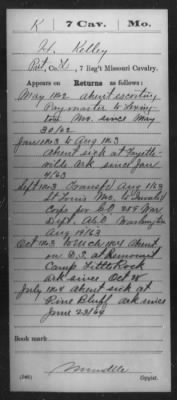 K 7 Cav. Mo.
H. Kelley
Pvt, Co. K, 7 Reg't Missouri Cavalry.
Appears on Returns as follows:
May 1862 absent escorting
Paymaster to Lexing-
ton Mo. since May
30/62
Jan 1863 to Aug 1863
Absent sick at Fayette-
ville Ark since Jan
4/63
Sept 1863 Transf'd Aug 1863
St Louis Mo. to Invalid
Corps per G.O. 289 War
Dept. A.G.O. Washington
Aug 19/63
Oct 1863 to Mch 1864 Absent
on D.S. at Remount
Camp Little Rock
Ark since Oct 28
July 1864 Absent sick at
Pine Bluff Ark since
June 23/64
Book mark:
(546) Copyist.